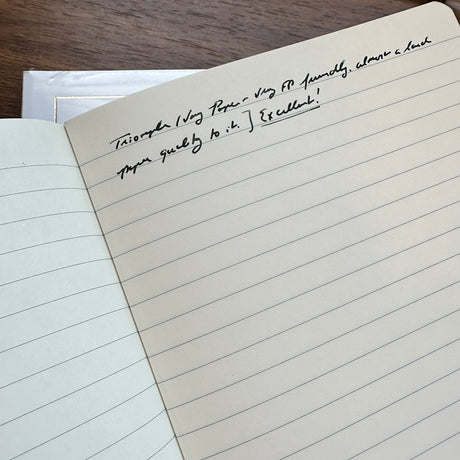 Triomphe Ivory Paper - Very FP friendly, almost a laid
paper quality to it. ] Excellent!